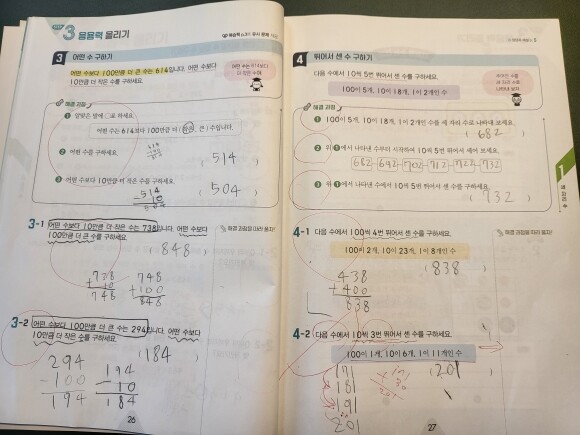 STEP 3 응용력 올리기
3 어떤 수 구하기
어떤 수보다 100만큼 더 큰 수는 614입니다. 어떤 수보다
10만큼 더 작은 수를 구하세요.
해결 과정
① 알맞은 말에 ○표 하세요.
어떤 수는 614보다 100만큼 더 (작은, 큰) 수입니다.
② 어떤 수를 구하세요.
( 514 )
③ 어떤 수보다 10만큼 더 작은 수를 구하세요.
514
- 10
504
( 504 )
3-1 어떤 수보다 10만큼 더 작은 수는 738입니다. 어떤 수보다
100만큼 더 큰 수를 구하세요.
( 848 )
738
+ 10
748
748
+ 100
848
3-2 어떤 수보다 100만큼 더 큰 수는 294입니다. 어떤 수보다
10만큼 더 작은 수를 구하세요.
( 184 )
294
- 100
194
194
- 10
184
26
4 뛰어서 센 수 구하기
다음 수에서 10씩 5번 뛰어서 센 수를 구하세요.
100이 5개, 10이 18개, 1이 2개인 수
해결 과정
① 100이 5개, 10이 18개, 1이 2개인 수를 세 자리 수로 나타내 보세요.
( 682 )
② 위 ①에서 나타낸 수부터 시작하여 10씩 5번 뛰어서 세어 보세요.
682-692-702-712-722-732
③ 위 ①에서 나타낸 수에서 10씩 5번 뛰어서 센 수를 구하세요.
( 732 )
4-1 다음 수에서 100씩 4번 뛰어서 센 수를 구하세요.
100이 2개, 10이 23개, 1이 8개인 수
( 838 )
438
+ 400
838
4-2 다음 수에서 10씩 3번 뛰어서 센 수를 구하세요.
100이 1개, 10이 6개, 1이 11개인 수
( 201 )
171
181
191
201
27
1